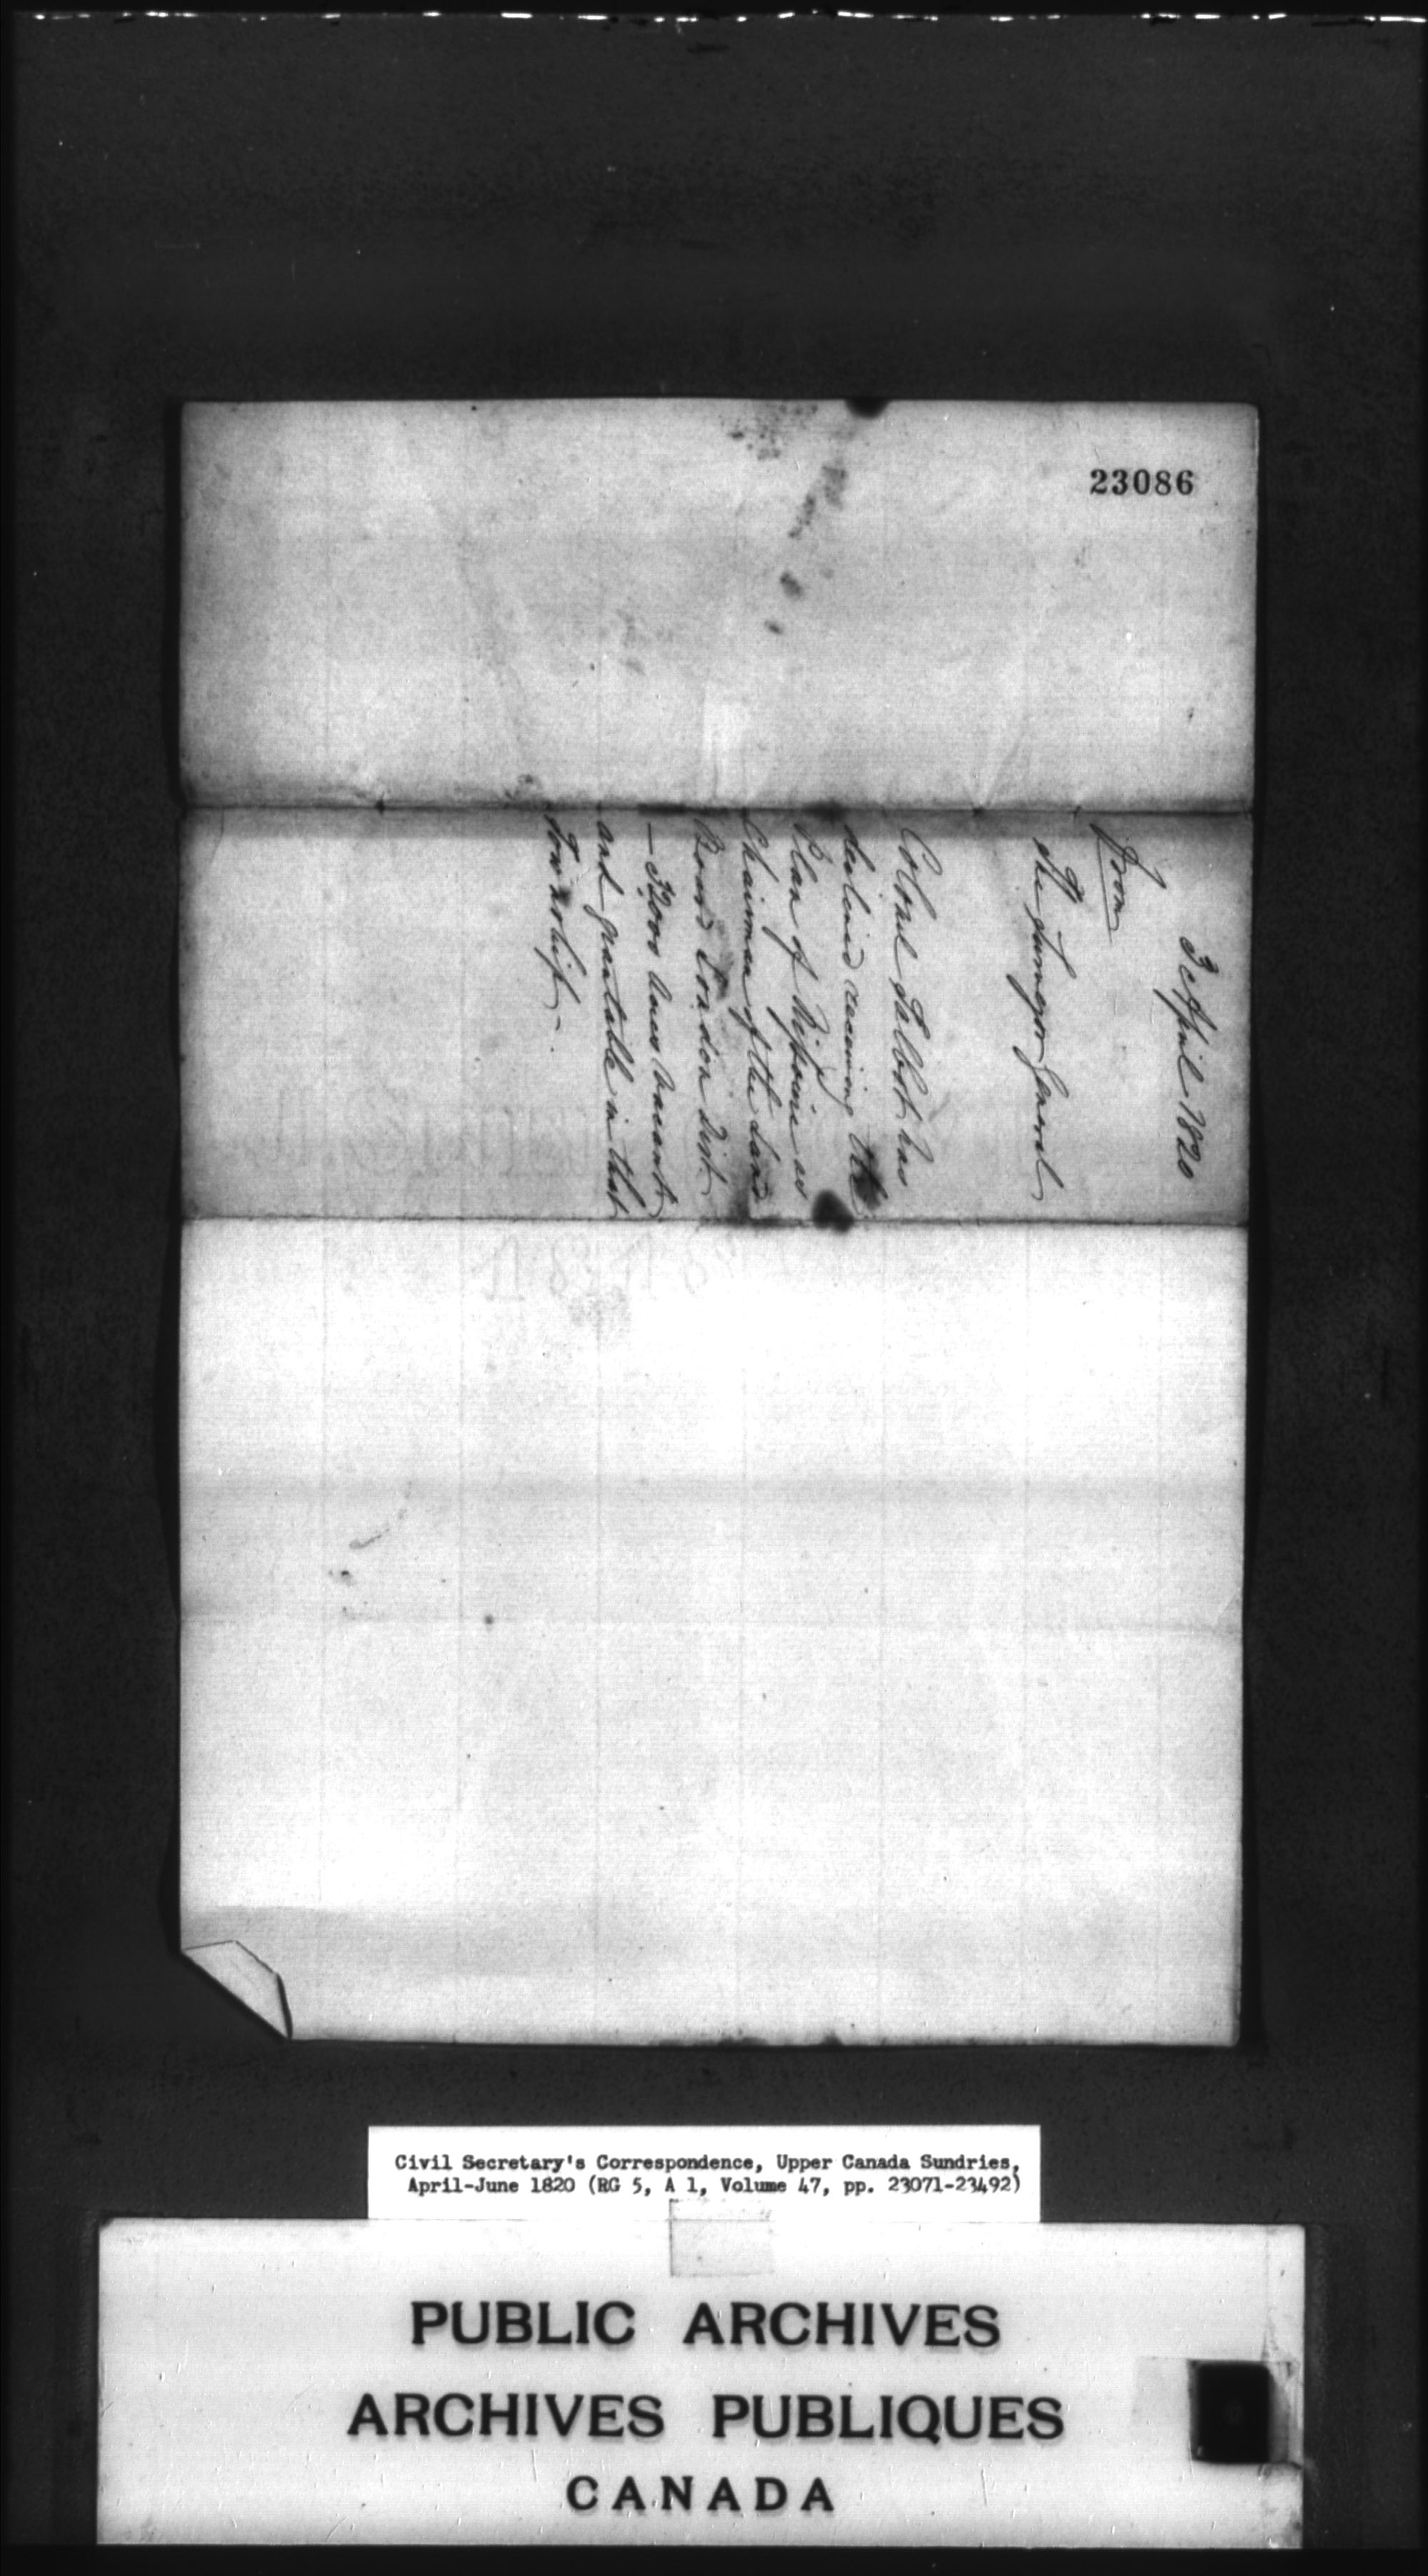 23086
3 April 1820
From
The Surveyor General
Colonel Talbot has
declined receiving the
Plan of Nissouri as
Chairman of the Land
Board London Dist.
and grantable in that
Township -
Civil Secretary's Correspondence, Upper Canada Sundries,
April-June 1820 (RG 5, A 1, Volume 47, pp. 23071-23492)
PUBLIC ARCHIVES
ARCHIVES PUBLIQUES
CANADA